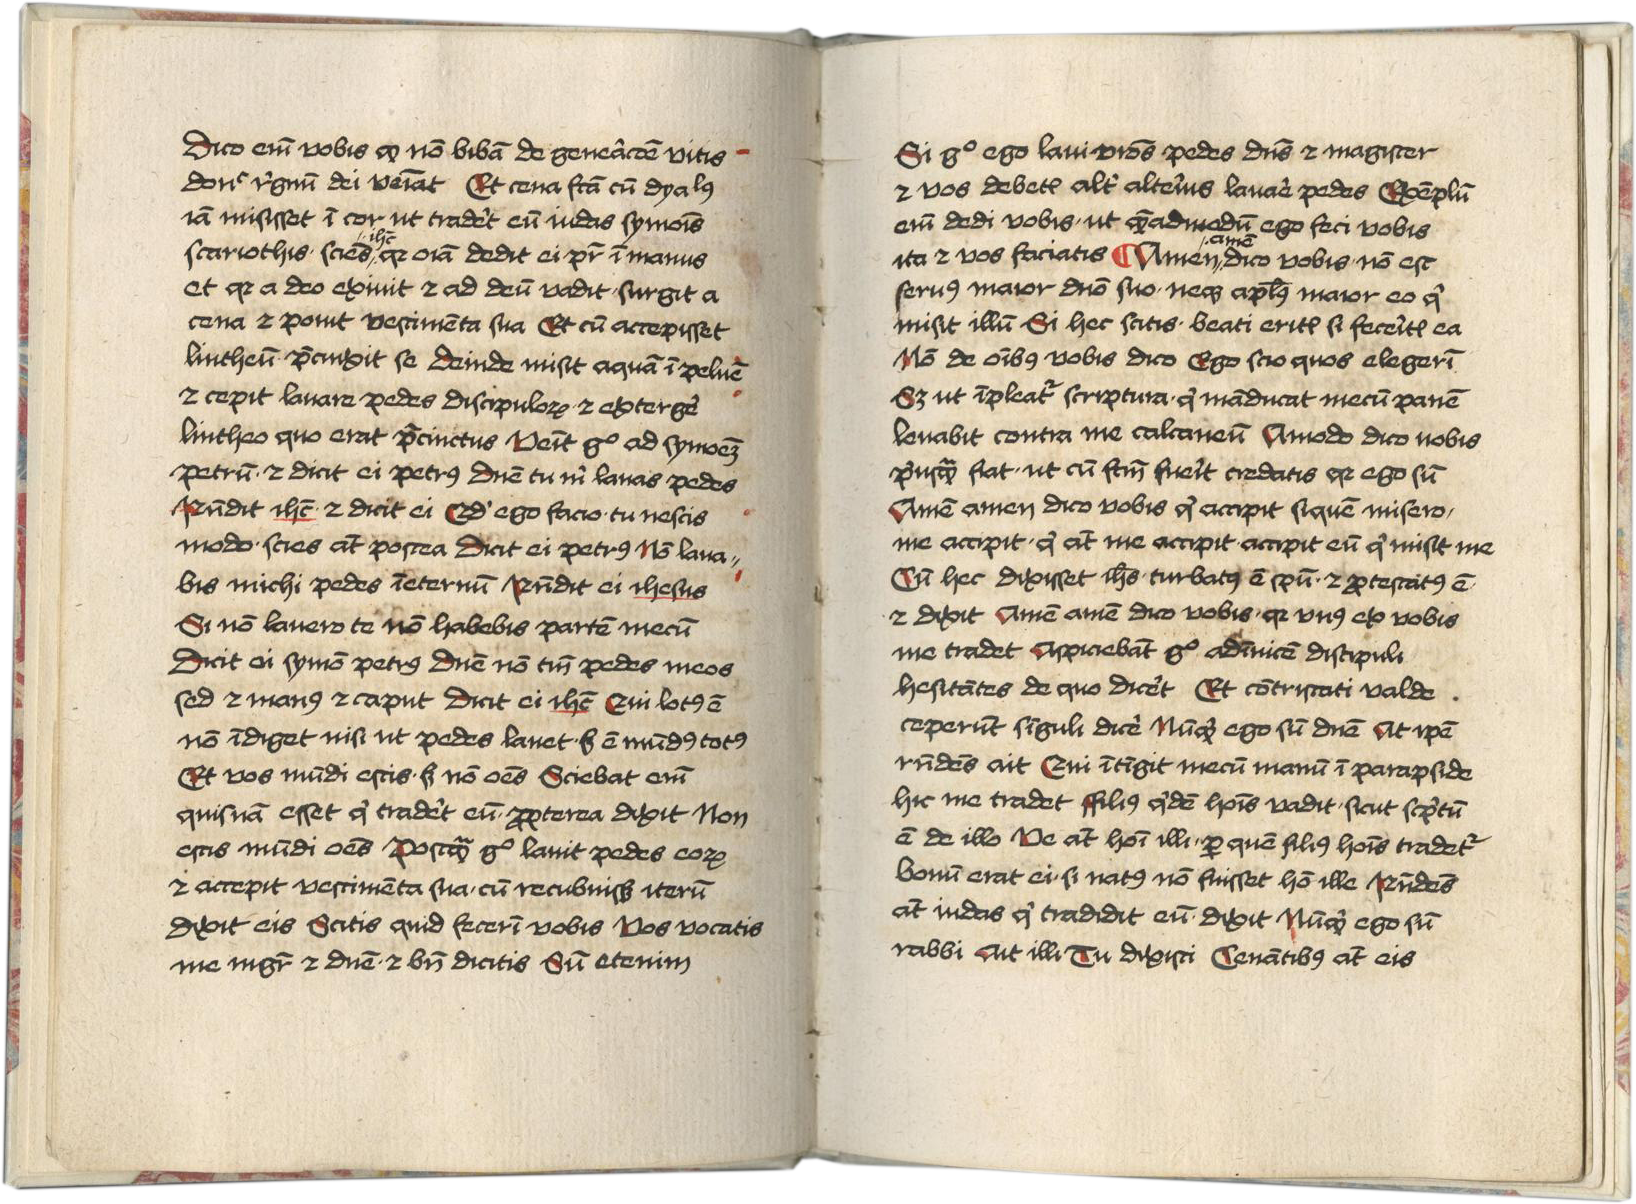 Dico em̄ vobis ꝙ nō bibā de geneᷓcōe vitis
donᶜ r̓gnū dei veiāt Et cena fc̄a cū dyalꝰ
iā misisset ī cor ut trade̓t eū iudas symoīs
scariothis · scies̄ ihc̄ qꝛ oīa dedit ei pr̄ ī manus
et qꝛ a deo exiuit ⁊ ad deū vadit · surgit a
cena ⁊ ponit vestimēta sua Et cū accepisset
lintheū · p̄cinxit se Deinde misit aquā ī peluē
⁊ cepit lauare pedes discipuloꝝ · ⁊ exterge̓
lintheo quo erat p̄cinctus Veīt gͦ ad symoēꝫ
petrū · ⁊ dicit ei petrꝰ dnē tu m̓ lauas pedes
Rn̄dit ihc̄ · ⁊ dicit ei Qd̓ ego facio · tu nescis
modo · scies at̄ postea Dicit ei petrꝰ Nō laua〃
bis michi pedes īeternū Rn̄dit ei ihesus
Si nō lauero te nō habebis partē mecū
Dicit ei symō petrꝰ Dnē nō tm̄ pedes meos
sed ⁊ manꝰ ⁊ caput Dicit ei ihc̄ Qui lotꝰ ē
nō īdiget nisi ut pedes lauet · ß ē mūdꝰ totꝰ
Et vos mūdi estis · ß nō oēs Sciebat em̄
quisnā esset q̓ trade̓t eū · ꝓpterea dixit Non
estis mūdi oēs Postqꝫ̄ gͦ lauit pedes eoꝝ
⁊ accepit vestimēta sua · cū recubuisß iterū
dixit eis Scitis quid fecerī vobis Vos vocatis
me mgr̄ ⁊ dnē · ⁊ bn̄ dicitis Sū etenim
Si gͦ ego laui vrōs pedes dn̄s ⁊ magister
⁊ vos debetꝭ alt̓ alte̓ius lauar̓e pedes Exēplū
em̄ dedi vobis · ut qꝫ̄admodū ego feci vobis
ita ⁊ vos faciatis Amen amē dico vobis · nō est
seruꝰ maior dnō suo · neqꝫ apl̄ꝰ maior eo q̓
misit illū Si hec scitis · beati eritꝭ si fece̓itꝭ ea
Nō de oībꝰ vobis dico Ego scio quos elegerī
Sꝫ ut īpleatᷣ scriptura · q̓ māducat mecū panē
leuabit contra me calcaneū Amodo dico uobis
p̓usqꝫ̄ fiat · ut cū fcm̄ fue̓it credatis qꝛ ego sū
Amē amen dico vobis q̓ accipit siquē misero /
me accipit · q̓ at̄ me accipit accipit eū q̓ misit me
Cū hec dixisset ih̄s · turbatꝰ ē spū · ⁊ ꝓtestatꝰ ē
⁊ dixit Amē amē dico vobis · qꝛ vnꝰ ex vobis
me tradet Aspiciebāt gͦ adīuicē discipuli
hesitātes de quo dice̓t Et cōtristati valde
ceperūt sīguli dice̓ Nūqͥd ego sū dnē At ipē
rn̄dēs ait Qui ītīgit mecū manū ī parapside
hic me tradet ffiliꝰ q̓dē hoīs vadit · sicut scp̓tū
ē de illo Ve at̄ hoī illi · ꝑ quē filiꝰ hoīs tradetᷣ
bonū erat ei · si natꝰ nō fuisset hō ille Rn̄dēs
at̄ iudas q̓ tradidit eū · dixit Nūqͥd ego sū
rabbi Ait illi Tu dixisti Cenātibꝰ at̄ eis